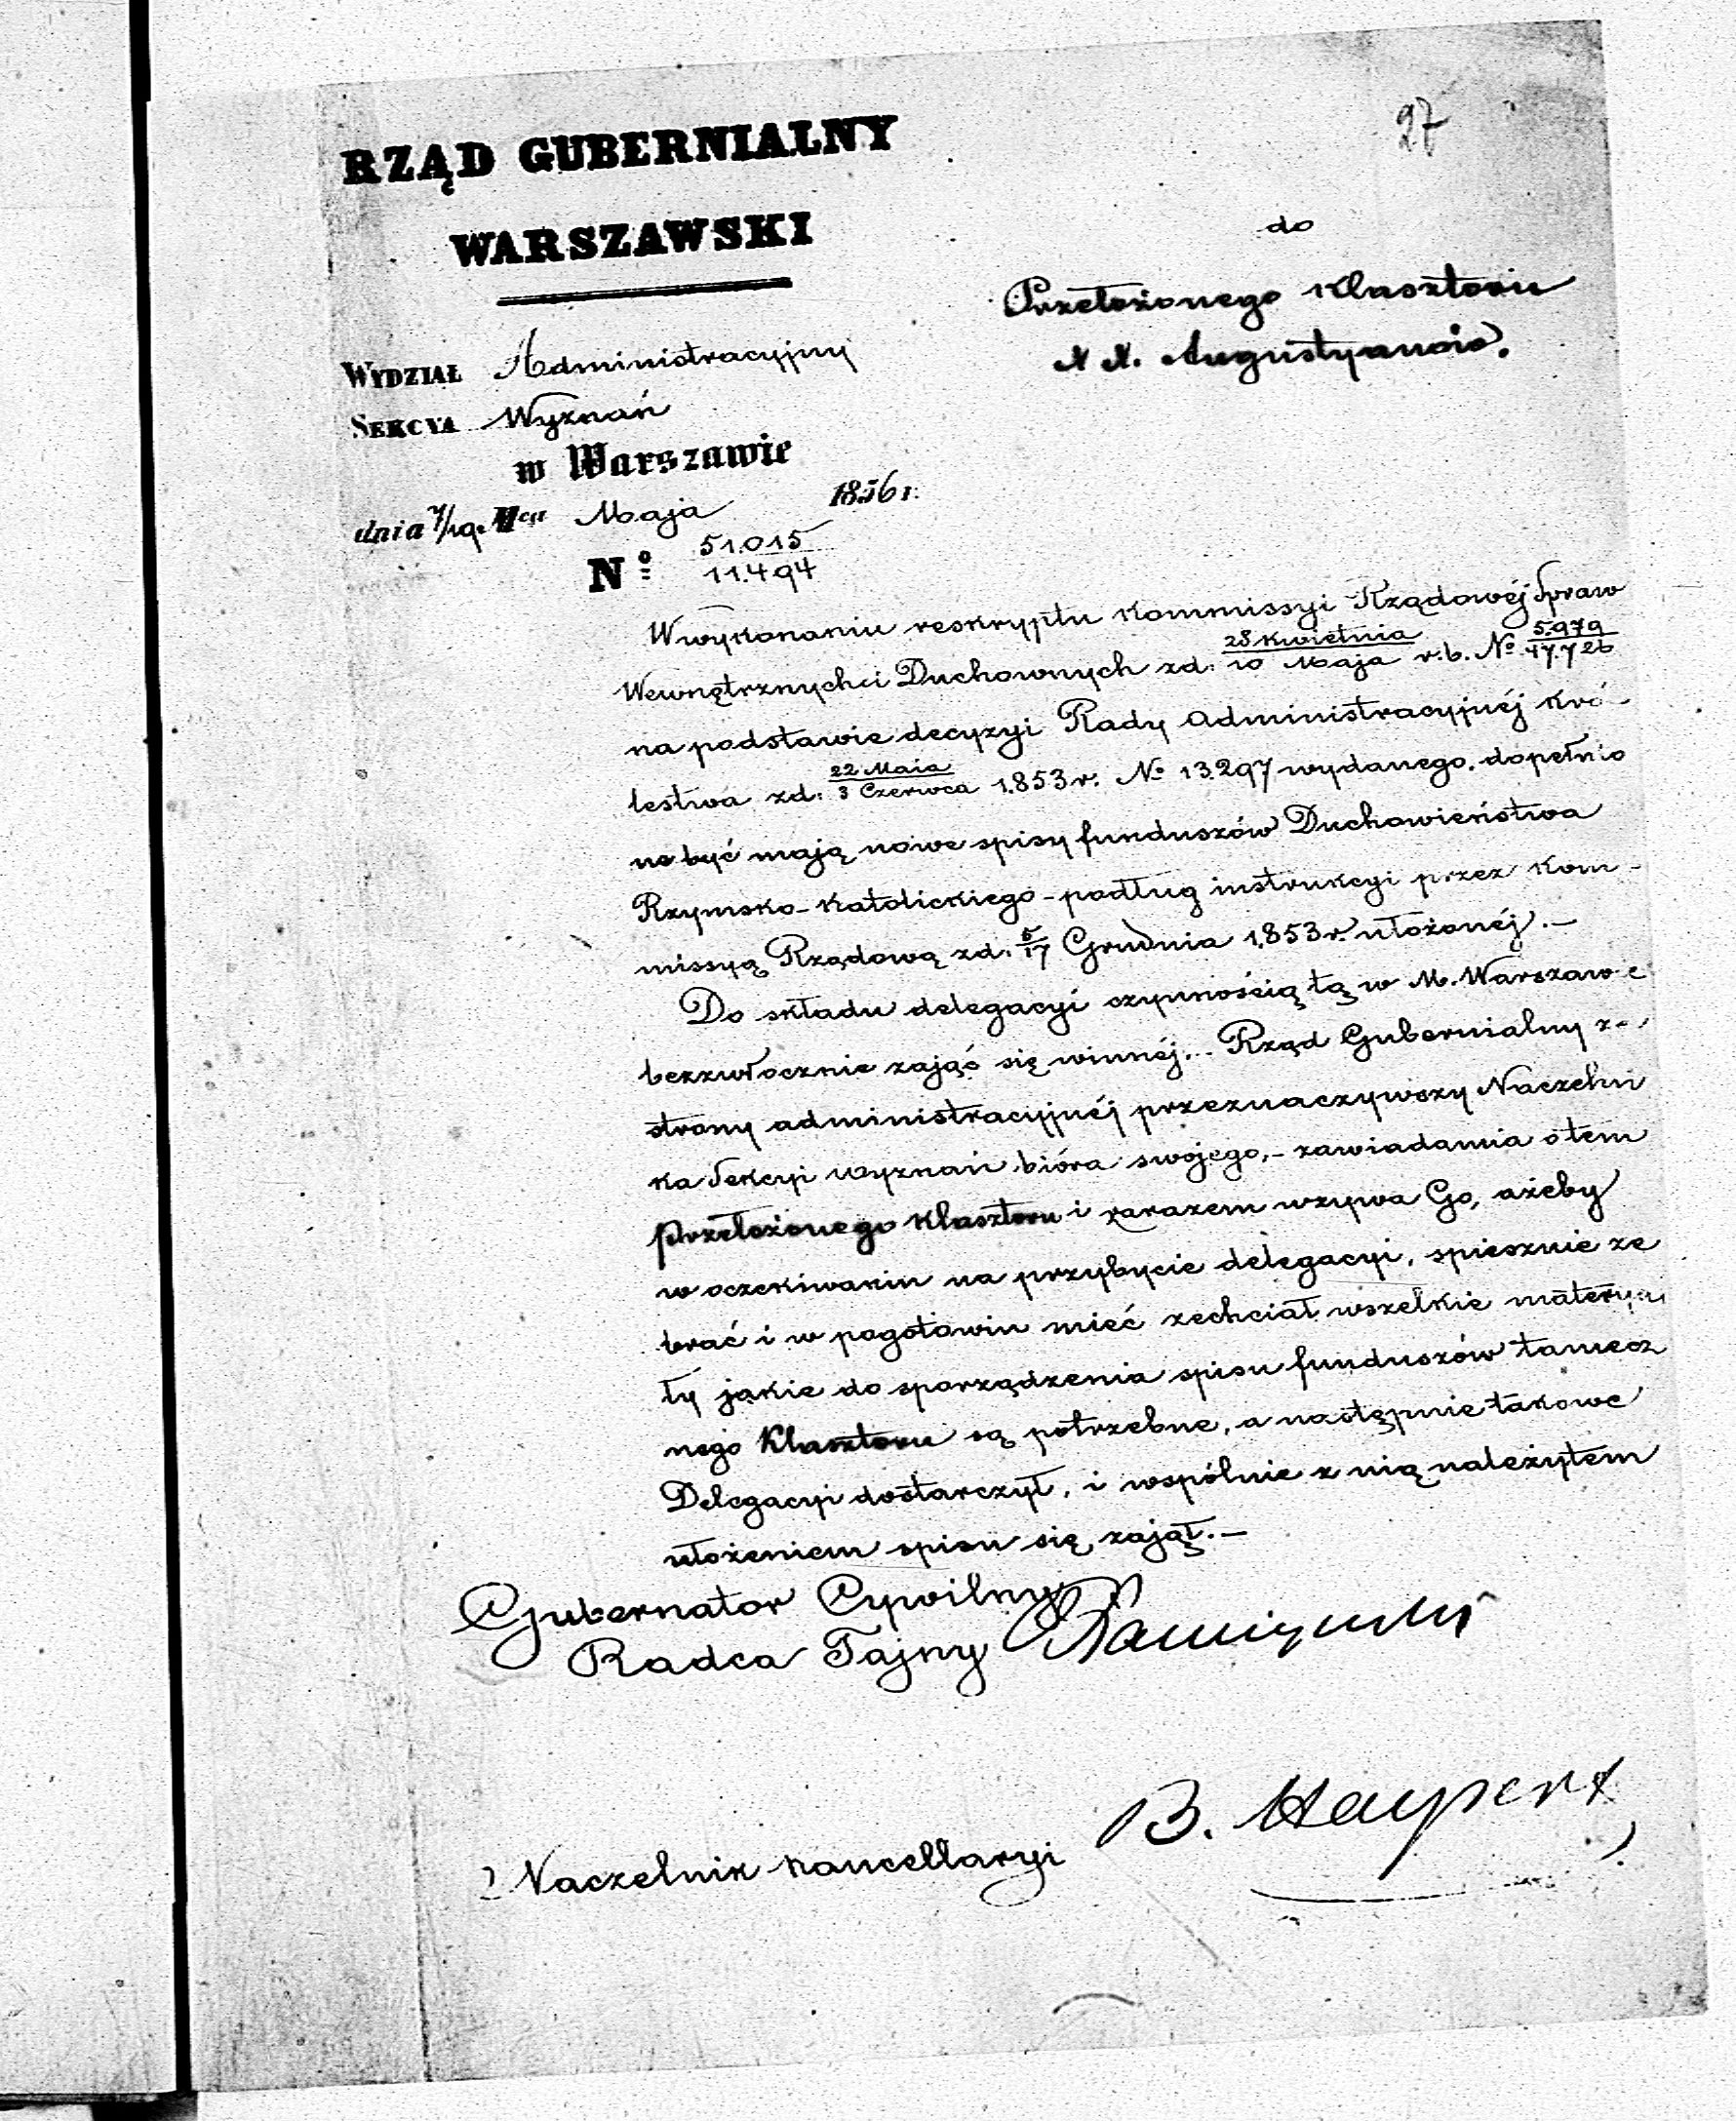 97
RZĄD GUBERNIALNY
WARSZAWSKI
WYDZIAŁ Administracyjny
SEKCYA Wyznań
w Warszawie
dnia 7/19 Mca Maja 1856 r.
No 51.015
11.494
do
Przełożonego Klasztoru
Augustyanów.
W wykonaniu reskryptu Kommissyi Rządowéj Spraw
Wewnętrznych i Duchownych z d. 28 Kwietnia / 10 Maja r. b. No 5.979 / 17.726
na podstawie decyzyi Rady Administracyjnéj Kró-
lestwa z d. 22 Maia / 3 Czerwca 1853 r. No 13.297 wydanego, dopełnio
ne być mają nowe spisy funduszów Duchowieństwa
Rzymsko-Katolickiego - podług instrukcyi przez Kom-
missyą Rządową z d. 5/17 Grudnia 1853 r. ułożonéj. —
Do składu delegacyi czynnością tą w M. Warszawie
bezzwłocznie zająć się winnéj... Rząd Gubernialny ze
strony administracyjnéj przeznaczywszy Naczelni
ka Sekcyi wyznań bióra swojego, - zawiadamia o tem
Przełożonego Klasztoru i zarazem wzywa Go, ażeby
w oczekiwaniu na przybycie delegacyi, spiesznie ze
brać i w pogotowiu mieć zechciał wszelkie materya
ły jakie do sporządzenia spisu funduszów tamecz
nego Klasztoru są potrzebne, a następnie takowe
Delegacyi dostarczył, i wspólnie z nią należytem
ułożeniem spisu się zajął. —
Gubernator Cywilny
Radca Tajny
Naczelnik Kancellaryi B. Haypert